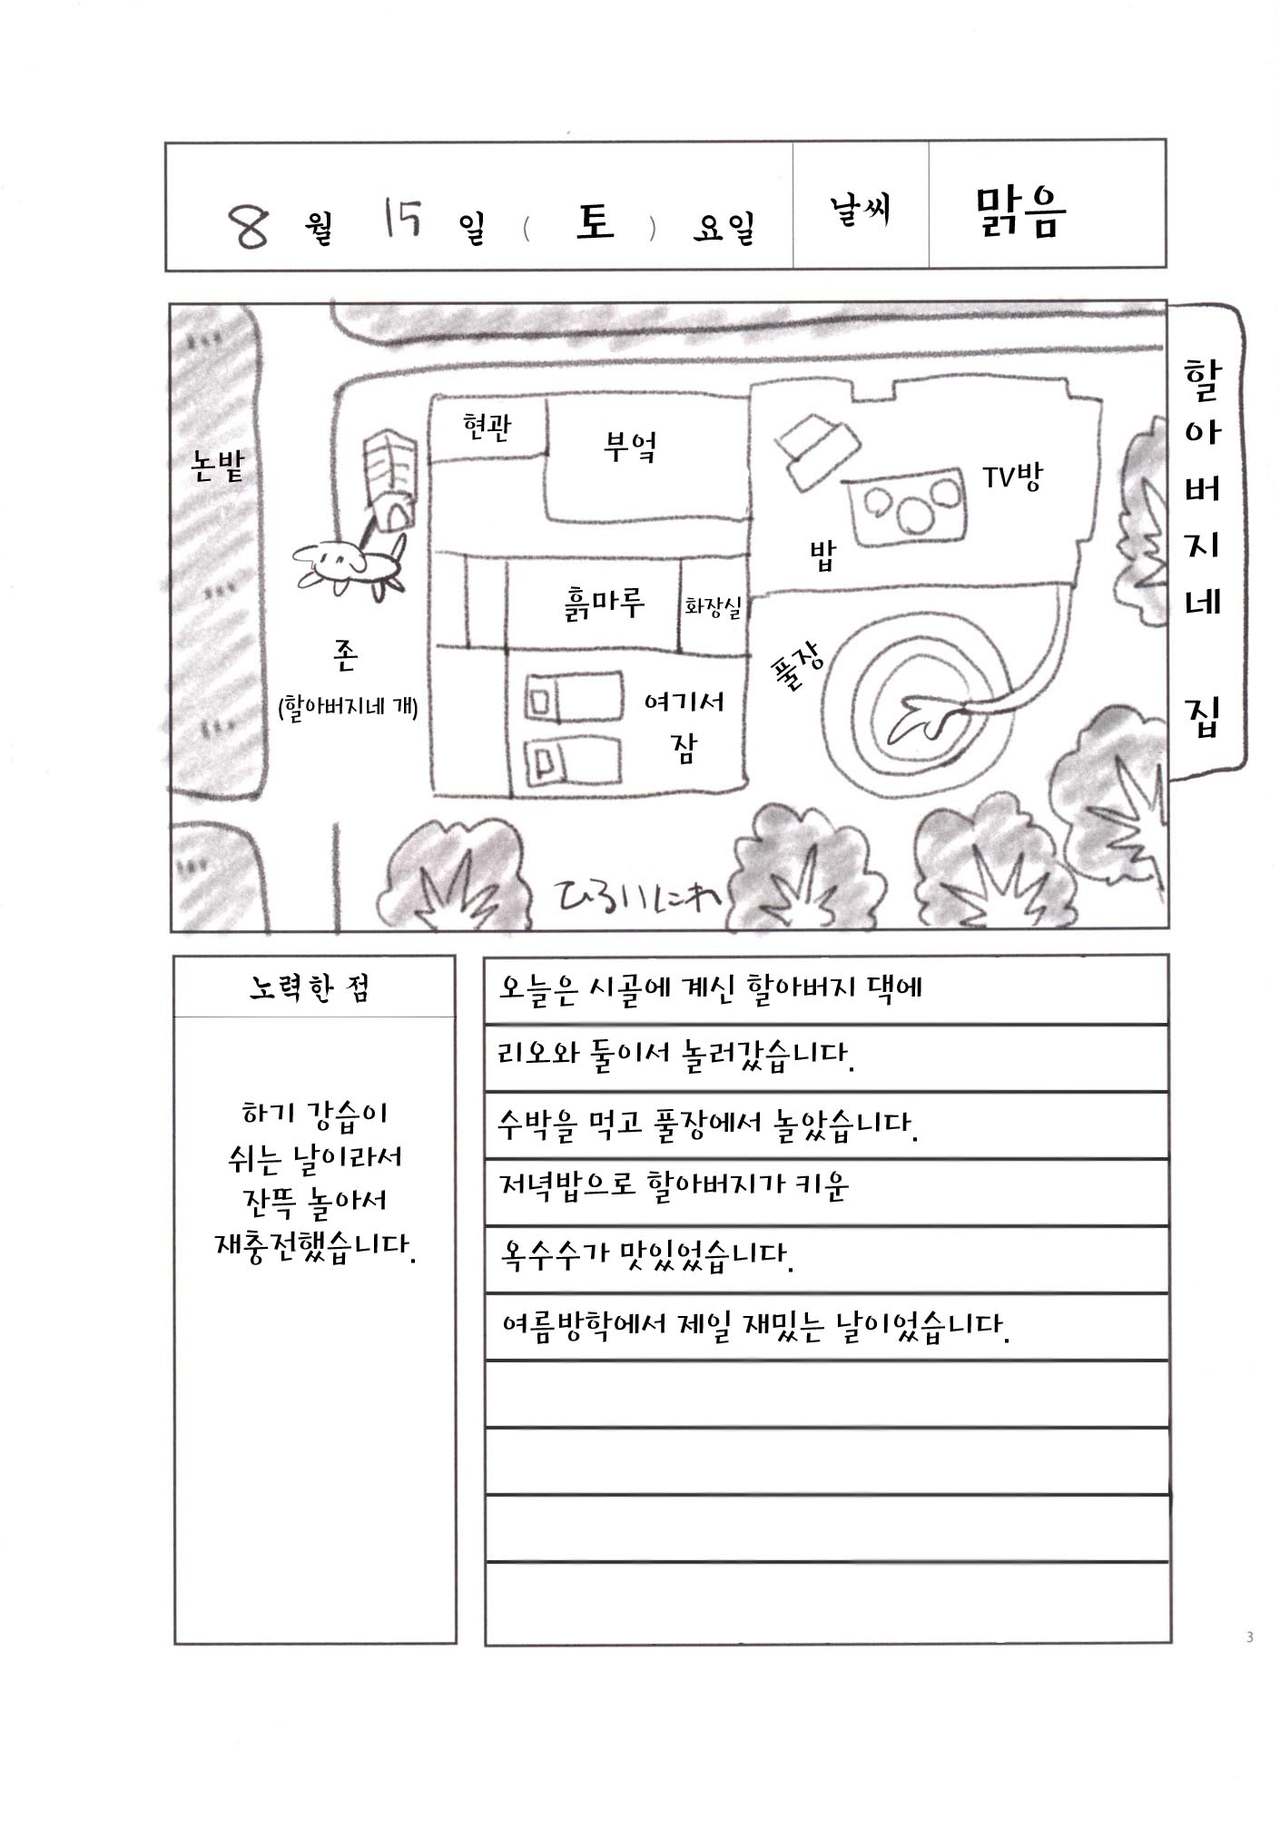 8 월 15 일 ( 토 ) 요일 날씨 맑음
할아버지네 집
현관
부엌
논밭
TV방
밥
흙마루
화장실
존
(할아버지네 개)
풀장
여기서
잠
ひろいにわ
노력한 점
하기 강습이
쉬는 날이라서
잔뜩 놀아서
재충전했습니다.
오늘은 시골에 계신 할아버지 댁에
리오와 둘이서 놀러갔습니다.
수박을 먹고 풀장에서 놀았습니다.
저녁밥으로 할아버지가 키운
옥수수가 맛있었습니다.
여름방학에서 제일 재밌는 날이었습니다.
3